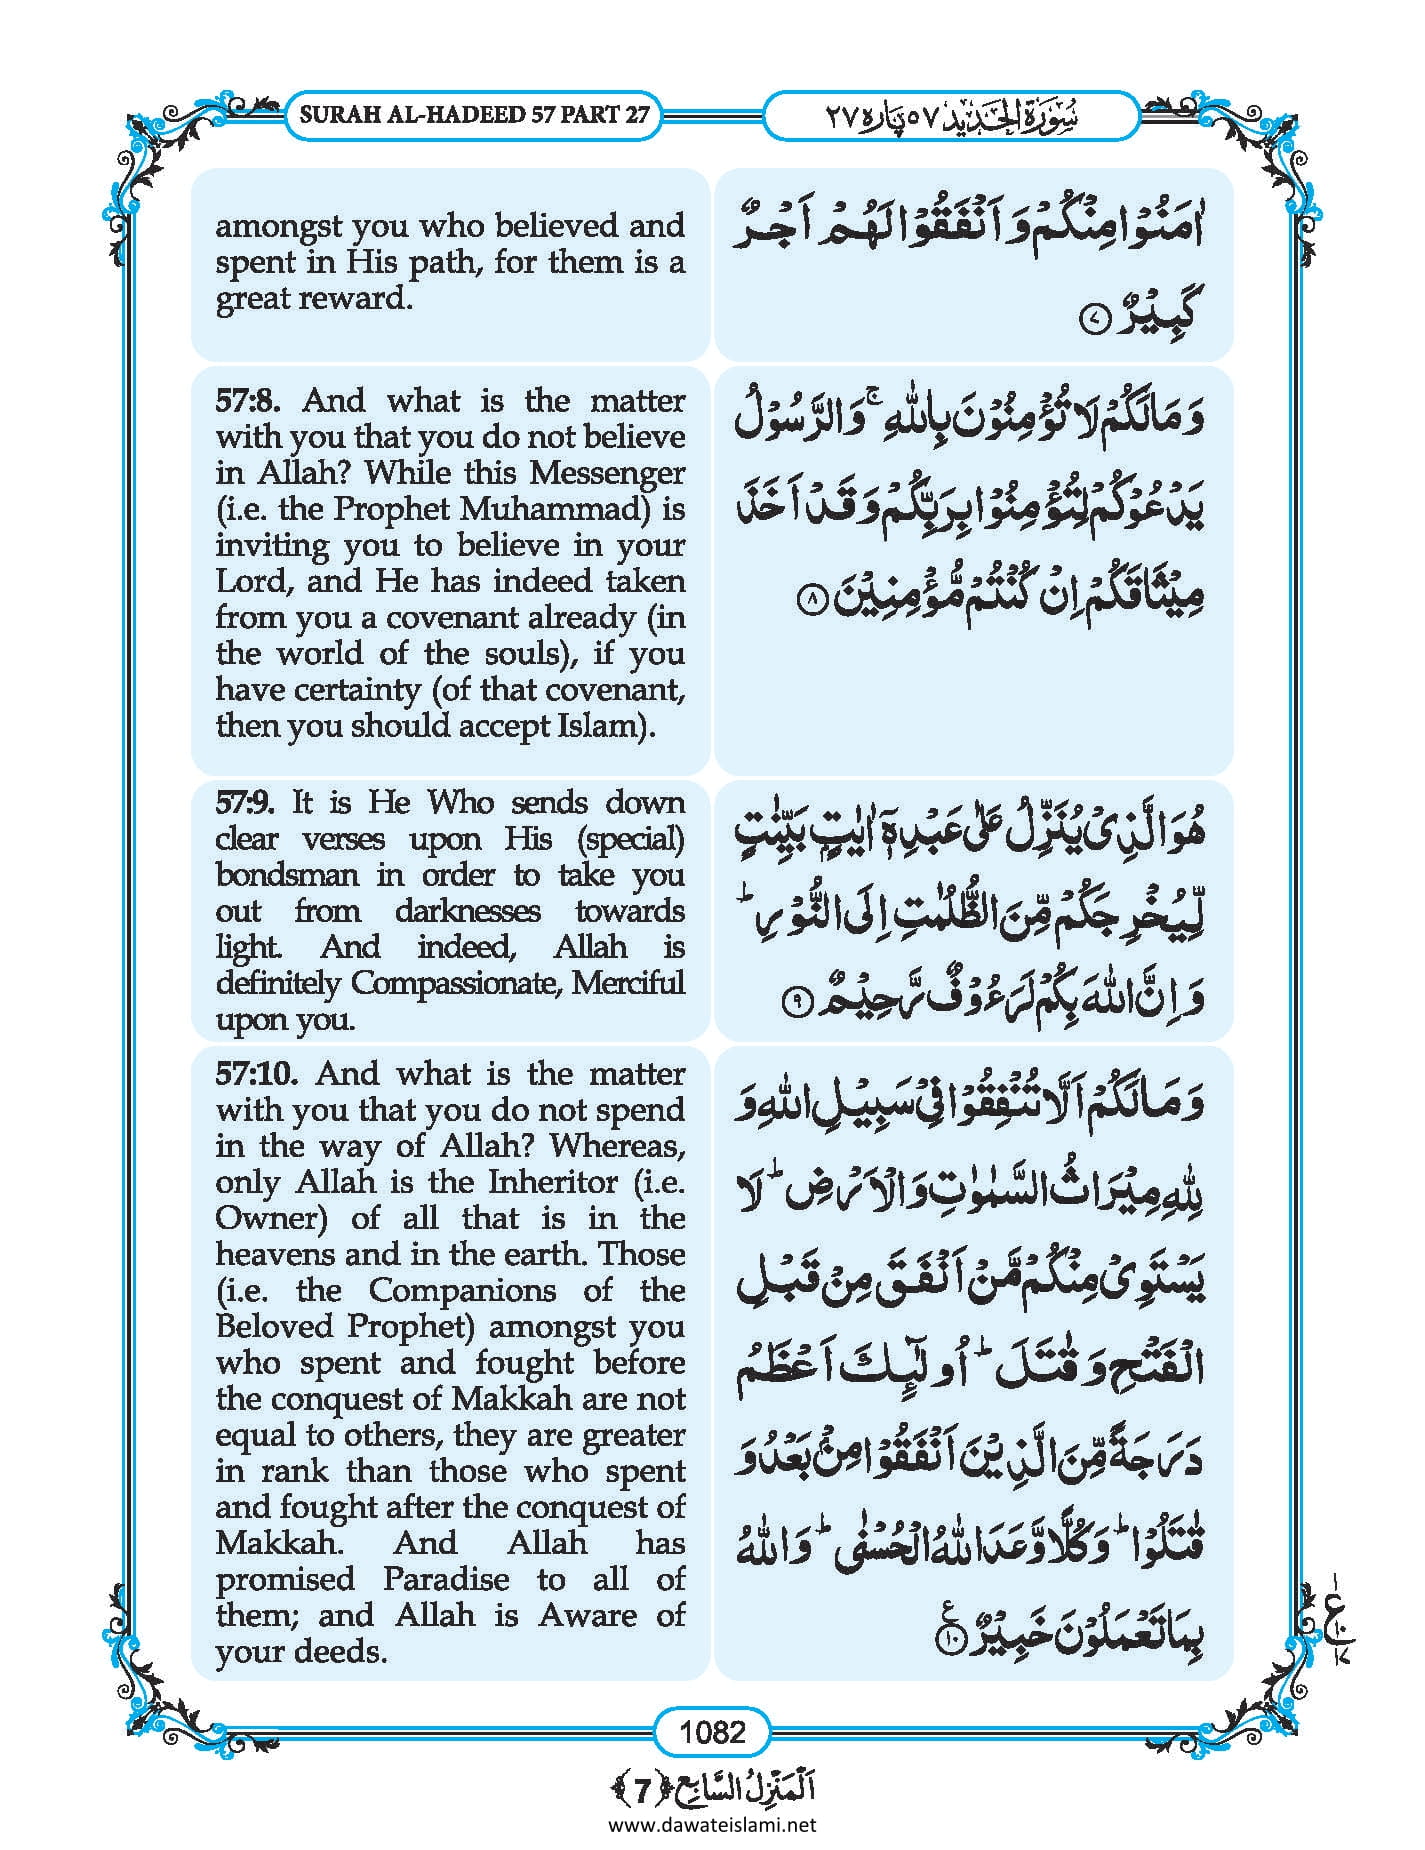 SURAH AL-HADEED 57 PART 27
سُوْرَةُ الْحَدِيْد ٥٧ پاره ٢٧
amongst you who believed and
spent in His path, for them is a
great reward.
اٰمَنُوْا مِنْكُمْ وَ اَنْفَقُوْا لَهُمْ اَجْرٌ
كَبِيْرٌ ۝٧
57:8. And what is the matter
with you that you do not believe
in Allah? While this Messenger
(i.e. the Prophet Muhammad) is
inviting you to believe in your
Lord, and He has indeed taken
from you a covenant already (in
the world of the souls), if you
have certainty (of that covenant,
then you should accept Islam).
وَ مَا لَكُمْ لَا تُؤْمِنُوْنَ بِاللّٰهِ ۚ وَ الرَّسُوْلُ
يَدْعُوْكُمْ لِتُؤْمِنُوْا بِرَبِّكُمْ وَ قَدْ اَخَذَ
مِيْثَاقَكُمْ اِنْ كُنْتُمْ مُّؤْمِنِيْنَ ۝٨
57:9. It is He Who sends down
clear verses upon His (special)
bondsman in order to take you
out from darknesses towards
light. And indeed, Allah is
definitely Compassionate, Merciful
upon you.
هُوَ الَّذِيْ يُنَزِّلُ عَلٰى عَبْدِهٖۤ اٰيٰتٍۭ بَيِّنٰتٍ
لِّيُخْرِجَكُمْ مِّنَ الظُّلُمٰتِ اِلَى النُّوْرِ ؕ
وَ اِنَّ اللّٰهَ بِكُمْ لَرَءُوْفٌ رَّحِيْمٌ ۝٩
57:10. And what is the matter
with you that you do not spend
in the way of Allah? Whereas,
only Allah is the Inheritor (i.e.
Owner) of all that is in the
heavens and in the earth. Those
(i.e. the Companions of the
Beloved Prophet) amongst you
who spent and fought before
the conquest of Makkah are not
equal to others, they are greater
in rank than those who spent
and fought after the conquest of
Makkah. And Allah has
promised Paradise to all of
them; and Allah is Aware of
your deeds.
وَ مَا لَكُمْ اَلَّا تُنْفِقُوْا فِيْ سَبِيْلِ اللّٰهِ وَ
لِلّٰهِ مِيْرَاثُ السَّمٰوٰتِ وَ الْاَرْضِ ؕ لَا
يَسْتَوِيْ مِنْكُمْ مَّنْ اَنْفَقَ مِنْ قَبْلِ
الْفَتْحِ وَ قٰتَلَ ؕ اُولٰٓىِٕكَ اَعْظَمُ
دَرَجَةً مِّنَ الَّذِيْنَ اَنْفَقُوْا مِنْۢ بَعْدُ وَ
قٰتَلُوْا ؕ وَ كُلًّا وَّعَدَ اللّٰهُ الْحُسْنٰى ؕ وَ اللّٰهُ
بِمَا تَعْمَلُوْنَ خَبِيْرٌ ۝١٠ ع
١
ع
١٠
١٧
1082
اَلْمَنْزِلُ السَّابِع ﴿7﴾
www.dawateislami.net